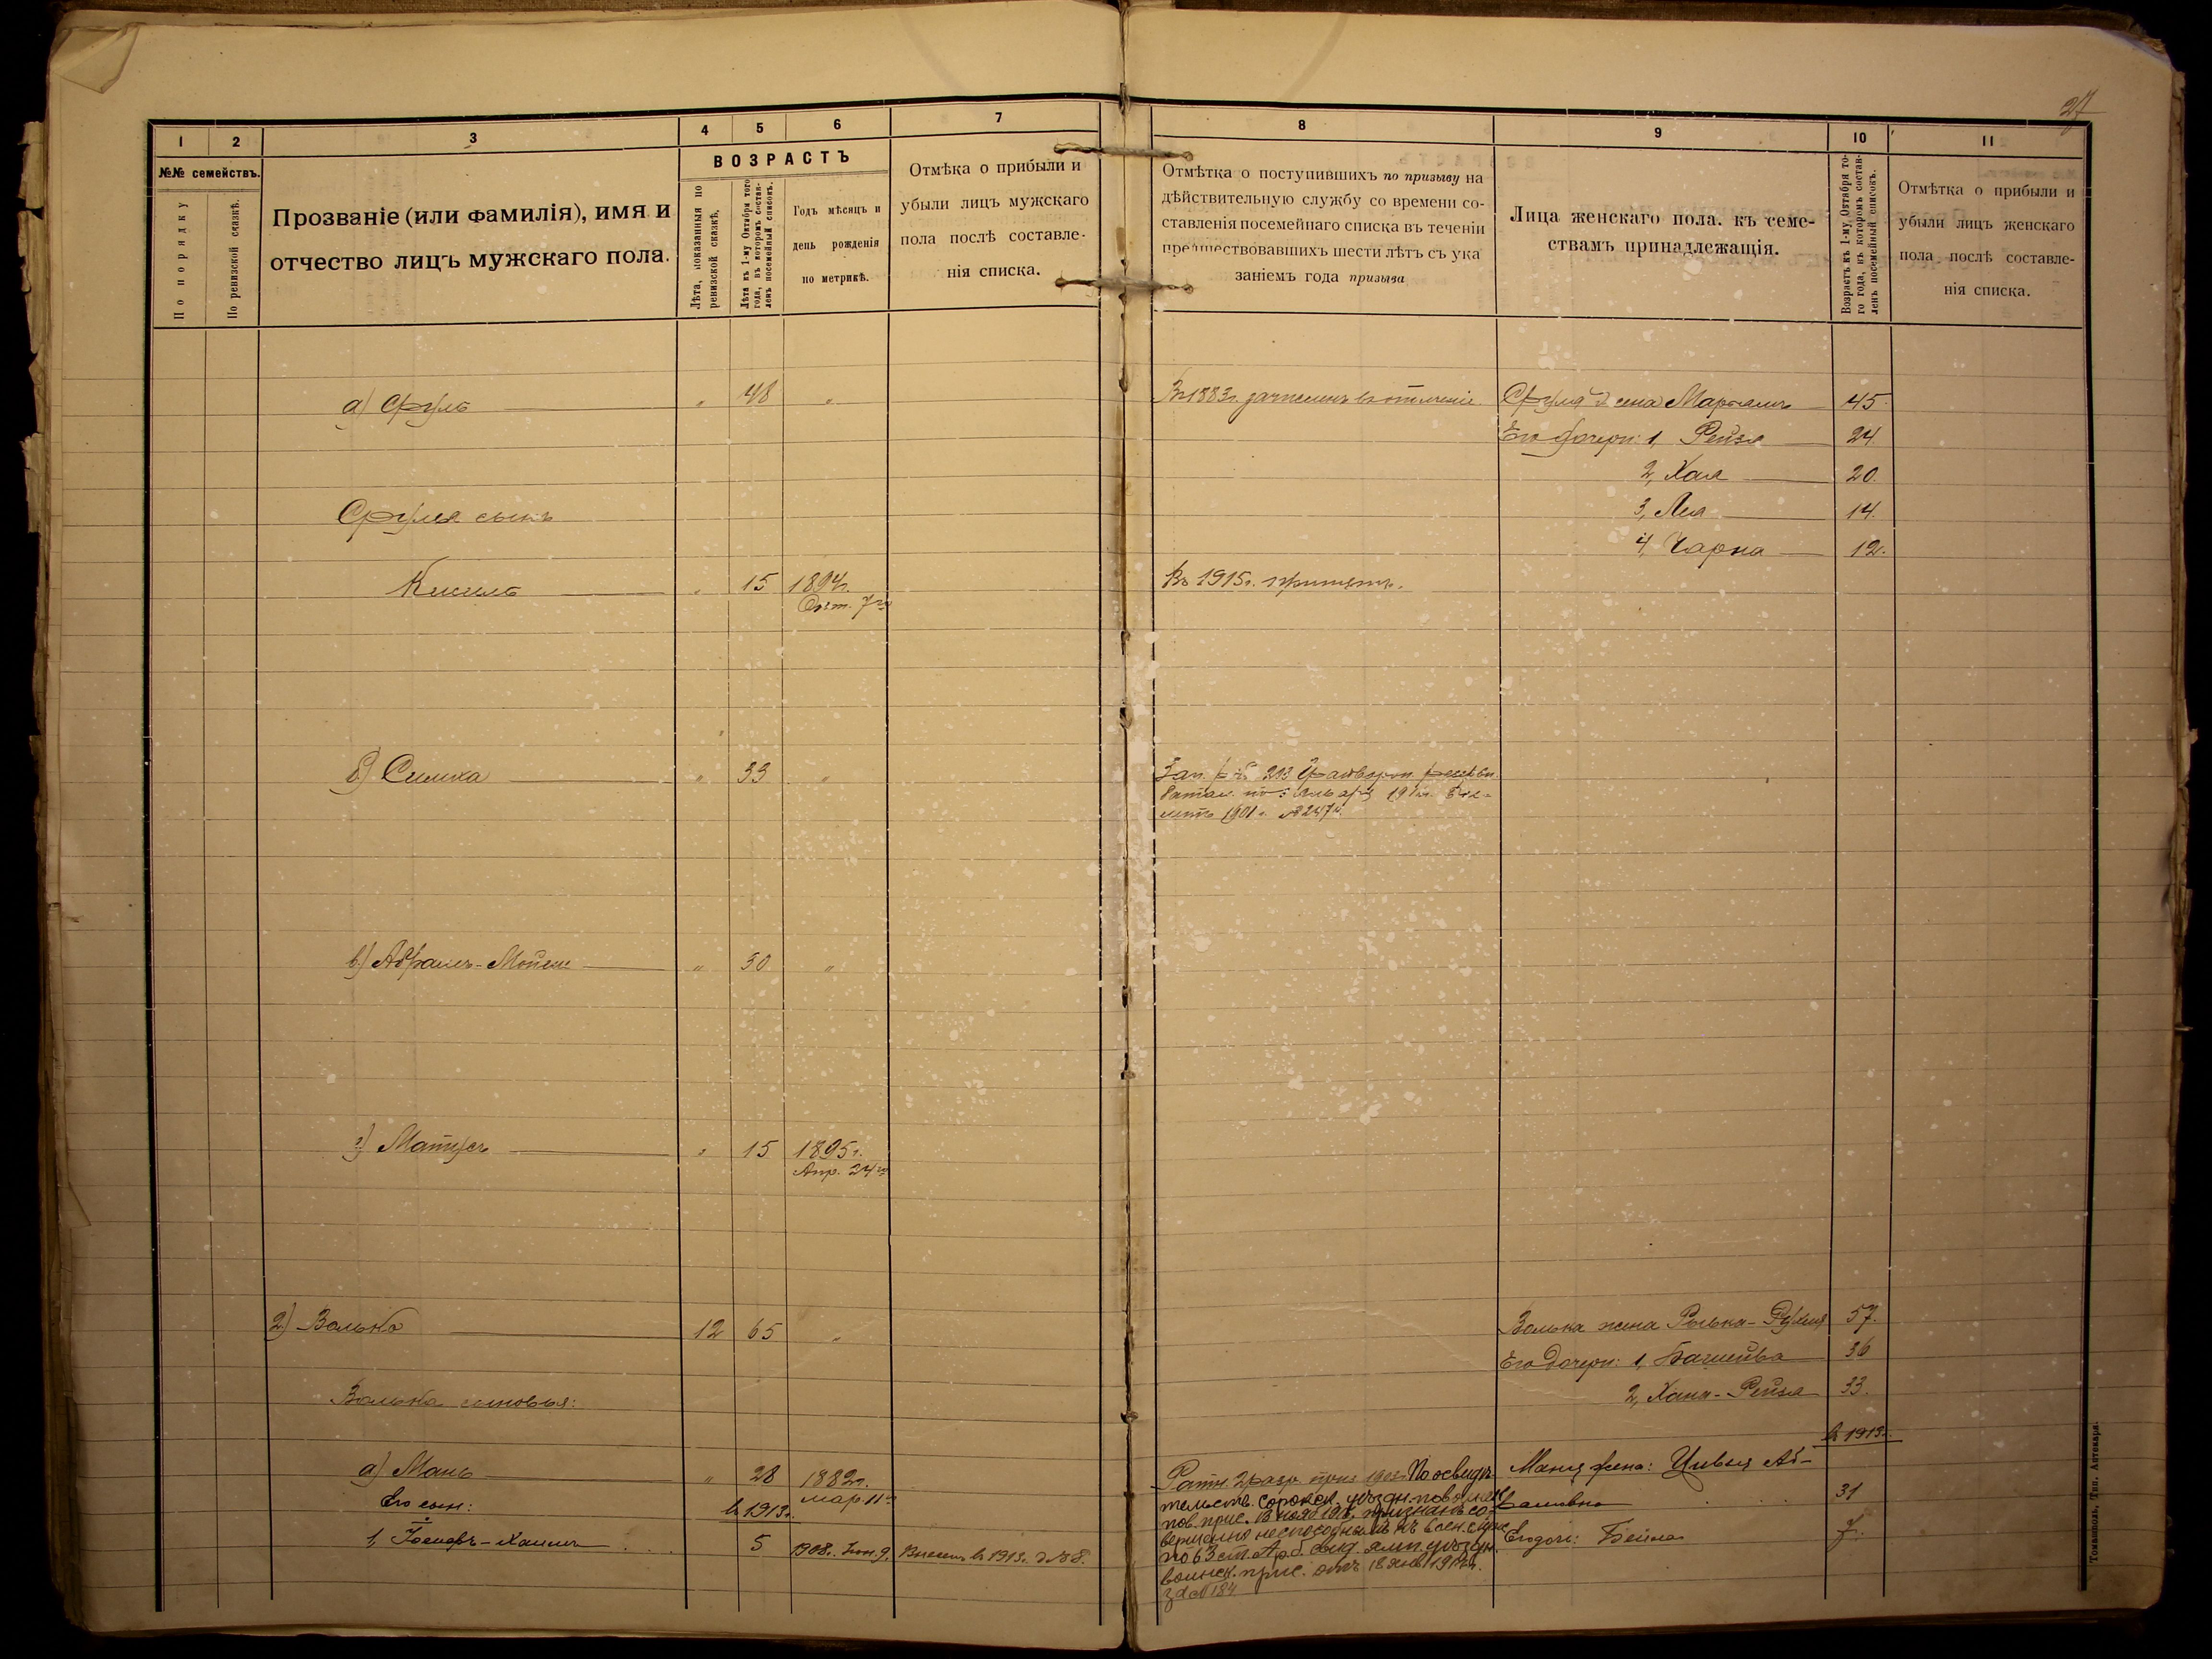 27
1 2 3 4 5 6 7
№№ семействъ.
По порядку
По ревизской сказкѣ.
Прозваніе (или фамилія), имя и
отчество лицъ мужскаго пола.
ВОЗРАСТЪ
Лѣта, показанныя по
ревизской сказкѣ,
Лѣта къ 1-му Октября того
года, въ которомъ состав-
ленъ посемейный списокъ.
Годъ мѣсяцъ и
день рожденія
по метрикѣ.
Отмѣка о прибыли и
убыли лицъ мужскаго
пола послѣ составле-
нія списка.
8 9 10 11
Отмѣтка о поступившихъ по призыву на
дѣйствительную службу со времени со-
ставленія посемейнаго списка въ теченіи
предшествовавшихъ шести лѣтъ съ ука
заніемъ года призыва
Лица женскаго пола. къ семе-
ствамъ принадлежащія.
Возрастъ къ 1-му Октября то-
го года, въ которомъ состав-
ленъ посемейный списокъ.
Отмѣтка о прибыли и
убыли лицъ женскаго
пола послѣ составле-
нія списка.
а) Сруль " 48 "
Въ 1883г. зачисленъ въ ополченіе
Сруля жена 45
Его дочери: 1, Рейзя 24
2, Хая 20.
Сруля сынъ
3, Лея 14.
4, Чарна 12.
Кисиль " 15 1894г.
Окт. 7го
Въ 1915г.
б) Симха " 33 "
Зап. 213
Января
1901 г. №
в) Абрамъ-Мойше " 30 "
г) Матусъ " 15 1895г.
Апр. 24го
2) Волько 12 65 "
Волька жена Рывка-Рухля 57.
Его дочери: 1, Башейва 36
2, Хана-Рейзя 33.
Волька сыновья:
въ 1913г.
а) Мань " 28 1882г.
мар. 11го
Его сын: въ 1913г.
1, Іосифъ-Хаимъ 5 1908г. Іюн. 9. Внесенъ въ 1913г.
Ратн. 2 разр. приз. 1903г. По освидѣ-
тельств. Сорокск. уѣздн. по воинск
пов. прис. 13 нояб. признанъ со-
вершенно неспособнымъ къ воен. служ
по 63 ст. Ар. б. увѣд. ямп. уѣздн.
воинск. прис. отъ 18 янв.
за № 184
Маня жена: Цивья Аб-
рамовна 31
Его доч: Бейла 7.
Томашполь, Тип. Аптекаря.